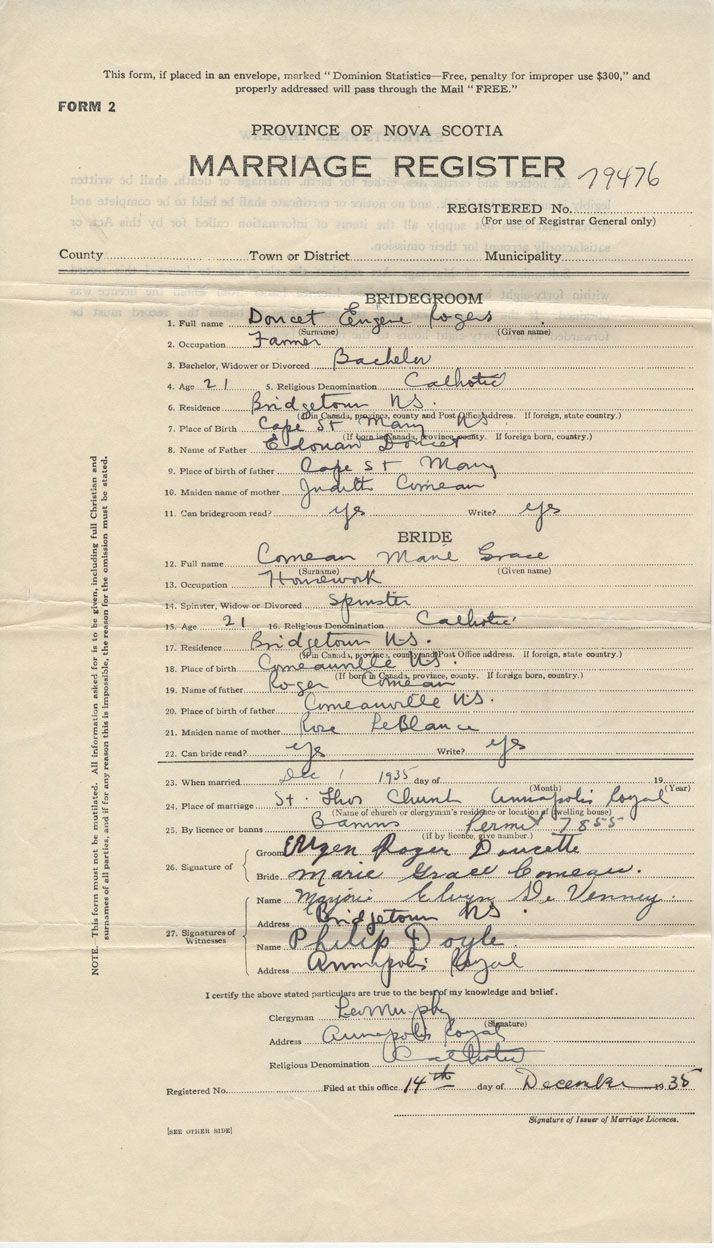 This form, if placed in an envelope, marked "Dominion Statistics—Free, penalty for improper use $300," and
properly addressed will pass through the Mail "FREE."
FORM 2
PROVINCE OF NOVA SCOTIA
MARRIAGE REGISTER 79476
REGISTERED No.
(For use of Registrar General only)
County Town or District Municipality
BRIDEGROOM
1. Full name Doucet Eugene Rogers
(Surname) (Given name)
2. Occupation Farmer
3. Bachelor, Widower or Divorced Bachelor
4. Age 21 5. Religious Denomination Catholic
6. Residence Bridgetown N.S.
(If in Canada, province, county and Post Office address. If foreign, state country.)
7. Place of Birth Cape St Mary N.S.
(If born in Canada, province, county. If foreign born, country.)
8. Name of Father Doucet
9. Place of birth of father Cape St Mary
10. Maiden name of mother Judith Comeau
11. Can bridegroom read? yes Write? yes
BRIDE
12. Full name Comeau Marie Grace
(Surname) (Given name)
13. Occupation Homework
14. Spinster, Widow or Divorced Spinster
15. Age 21 16. Religious Denomination Catholic
17. Residence Bridgetown N.S.
(If in Canada, province, county and Post Office address. If foreign, state country.)
18. Place of birth Comeauville N.S.
(If born in Canada, province, county. If foreign born, country.)
19. Name of father Roger Comeau
20. Place of birth of father Comeauville N.S.
21. Maiden name of mother Rose LeBlance
22. Can bride read? yes Write? yes
23. When married Dec 1 1935 day of 19
(Month) (Year)
24. Place of marriage St. Thos Church Annapolis Royal
(Name of church or clergyman's residence or location of dwelling house)
25. By licence or banns Banns Permit 7855
(If by licence, give number.)
26. Signature of
Groom Eugen Roger Doucette
Bride Marie Grace Comeau.
27. Signatures of Witnesses
Name Marjorie Elvyn De Venney.
Address Bridgetown N.S.
Name Philip Doyle.
Address Annapolis Royal
I certify the above stated particulars are true to the best of my knowledge and belief.
Clergyman Leo Murphy
(Signature)
Address Annapolis Royal
Religious Denomination Catholic
Registered No. Filed at this office 14th day of December 1935
Signature of Issuer of Marriage Licences.
[SEE OTHER SIDE]
NOTE.—This form must not be mutilated. All information asked for is to be given, including full Christian and
surnames of all parties, and if for any reason this is impossible, the reason for the omission must be stated.